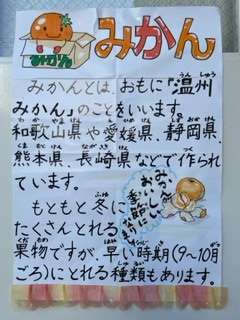 みかん
みかん
みかんとは、おもに「温州
みかん」のことをいいます。
和歌山県や愛媛県、静岡県、
熊本県、長崎県などで作られ
ています。
もともと冬に
たくさんとれる
果物ですが、早い時期(9〜10月
ごろ)にとれる種類もあります。
みかんの
おいしい